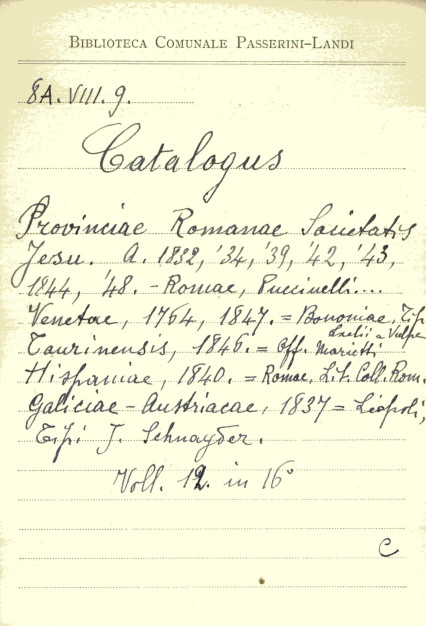 BIBLIOTECA COMUNALE PASSERINI-LANDI
8A. VIII. 9.
Catalogus
Provinciae Romanae Societatis
Jesu. A. 1832, '34, '39, '42, '43,
1844, '48. - Romae, Puccinelli...
Venetae, 1764, 1847. = Bononiae, Tip.
Laelii a Vulpe
Taurinensis, 1846. = Off. Marietti
Hispaniae, 1840. = Romae, Lit. Coll. Rom.
Galiciae - Austriacae, 1837 = Leopoli,
Tipi J. Schnayder.
Voll. 12. in 16°
C